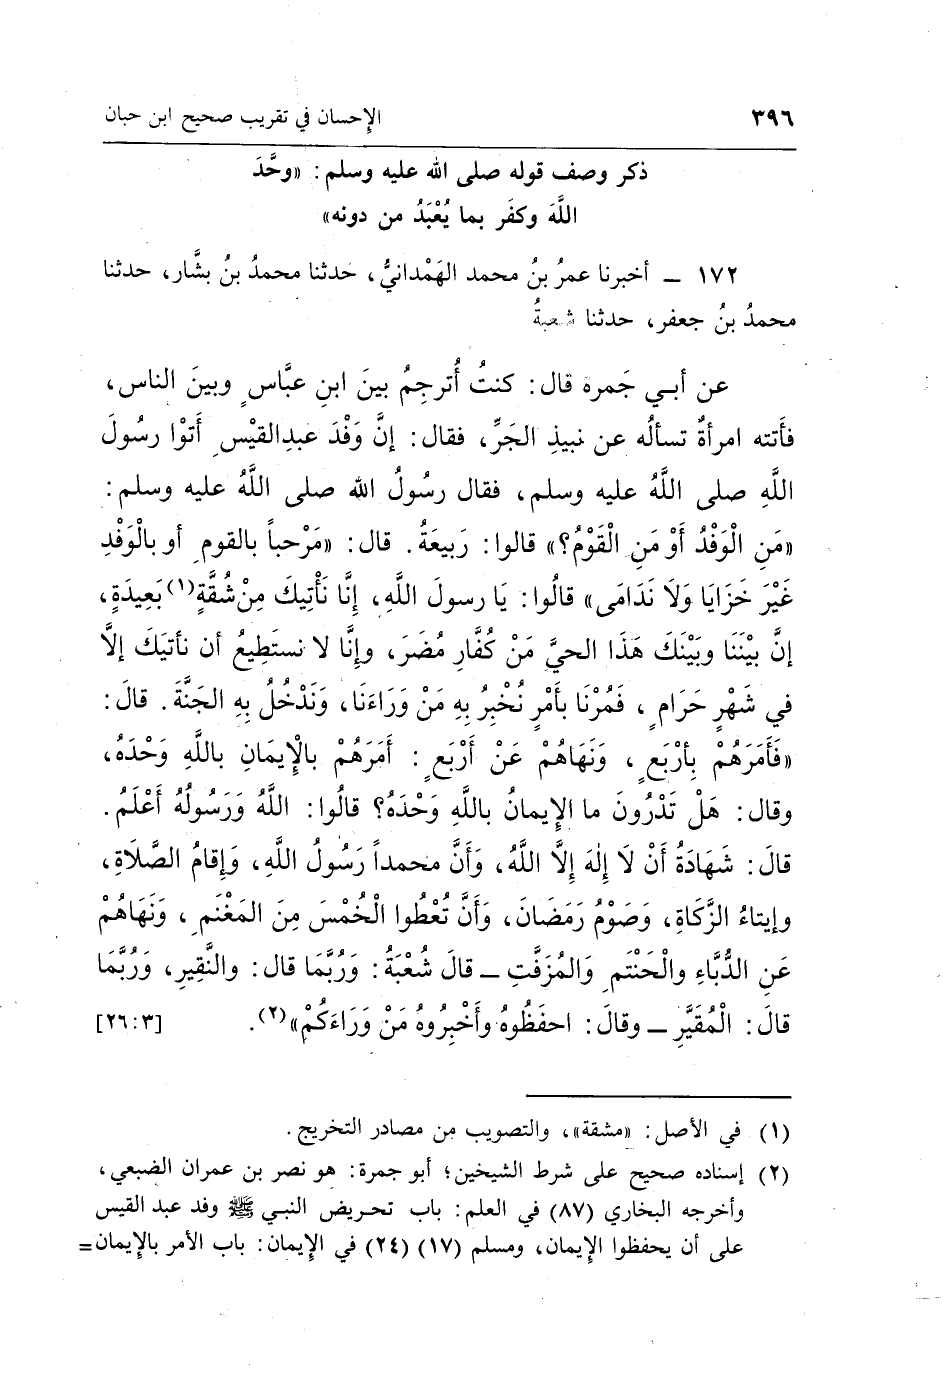 ٣٩٦ الإحسان في تقريب صحيح ابن حبان
ذكر وصف قوله صلى الله عليه وسلم: «وحَّدَ
اللَّهَ وكفَر بما يُعْبَدُ من دونه»
١٧٢ ــ أخبرنا عمرُ بنُ محمد الهَمْدانيُّ، حدثنا محمدُ بنُ بشَّار، حدثنا
محمدُ بنُ جعفر، حدثنا شعبةُ
عن أبـي جَمرة قال: كنتُ أُترجِمُ بينَ ابنِ عبَّاسٍ وبينَ الناس،
فأَتته امرأةٌ تسألُه عن نبيذِ الجَرِّ، فقال: إنَّ وَفْدَ عبدِالقيْسِ أَتوْا رسُولَ
اللَّهِ صلى اللَّهُ عليه وسلم، فقال رسُولُ الله صلى اللَّهُ عليه وسلم:
«مَنِ الْوَفْدُ أَوْ مَنِ الْقَوْمُ؟» قالوا: رَبيعَةُ. قال: «مَرْحباً بالقومِ أو بالْوَفْدِ
غَيْرَ خَزَايَا وَلَا نَدَامَى» قالُوا: يَا رسولَ اللَّهِ، إنَّا نَأْتِيكَ مِنْ شُقَّةٍ(١) بَعِيدَةٍ،
إنَّ بيْنَنَا وبَيْنَكَ هَذَا الحيَّ مَنْ كُفَّارِ مُضَرَ، وإنَّا لا نستَطِيعُ أن نأتيَكَ إلَّا
في شَهْرٍ حَرَامٍ، فَمُرْنَا بأَمْرٍ نُخْبِرُ بِهِ مَنْ وَرَاءَنَا، وَنَدْخُلُ بِهِ الجَنَّةَ. قالَ:
«فَأَمَرَهُمْ بِأَرْبَعٍ، وَنَهَاهُمْ عَنْ أَرْبَعٍ: أَمَرَهُمْ بالْإِيمَانِ باللَّهِ وَحْدَهُ،
وقال: هَلْ تَدْرُونَ ما الإيمانُ باللَّهِ وَحْدَهُ؟ قالُوا: اللَّهُ وَرَسُولُهُ أَعْلَمُ.
قالَ: شَهَادَةُ أَنْ لَا إِلٰهَ إِلَّا اللَّهُ، وَأَنَّ محمداً رَسُولُ اللَّهِ، وَإِقامُ الصَّلَاةِ،
وإيتاءُ الزَّكَاةِ، وَصَوْمُ رَمَضَانَ، وَأَنَّ تُعْطُوا الْخُمْسَ مِنَ المَغْنَمِ، وَنَهَاهُمْ
عَنِ الدُّبَّاءِ والْحَنْتَمِ وَالمُزَفَّتِ ــ قالَ شُعْبَةُ: وَرُبَّمَا قال: والنَّقِيرِ، وَرُبَّمَا
قالَ: الْمُقَيَّرِ ــ وقالَ: احفَظُوهُ وأَخْبِرُوهُ مَنْ وَرَاءَكُمْ»(٢). [٢٦:٣]
(١) في الأصل: «مشقة»، والتصويب من مصادر التخريج.
(٢) إسناده صحيح على شرط الشيخين؛ أبو جمرة: هو نصر بن عمران الضبعي،
وأخرجه البخاري (٨٧) في العلم: باب تحريض النبـي ﷺ وفد عبد القيس
على أن يحفظوا الإيمان، ومسلم (١٧) (٢٤) في الإيمان: باب الأمر بالإيمان =